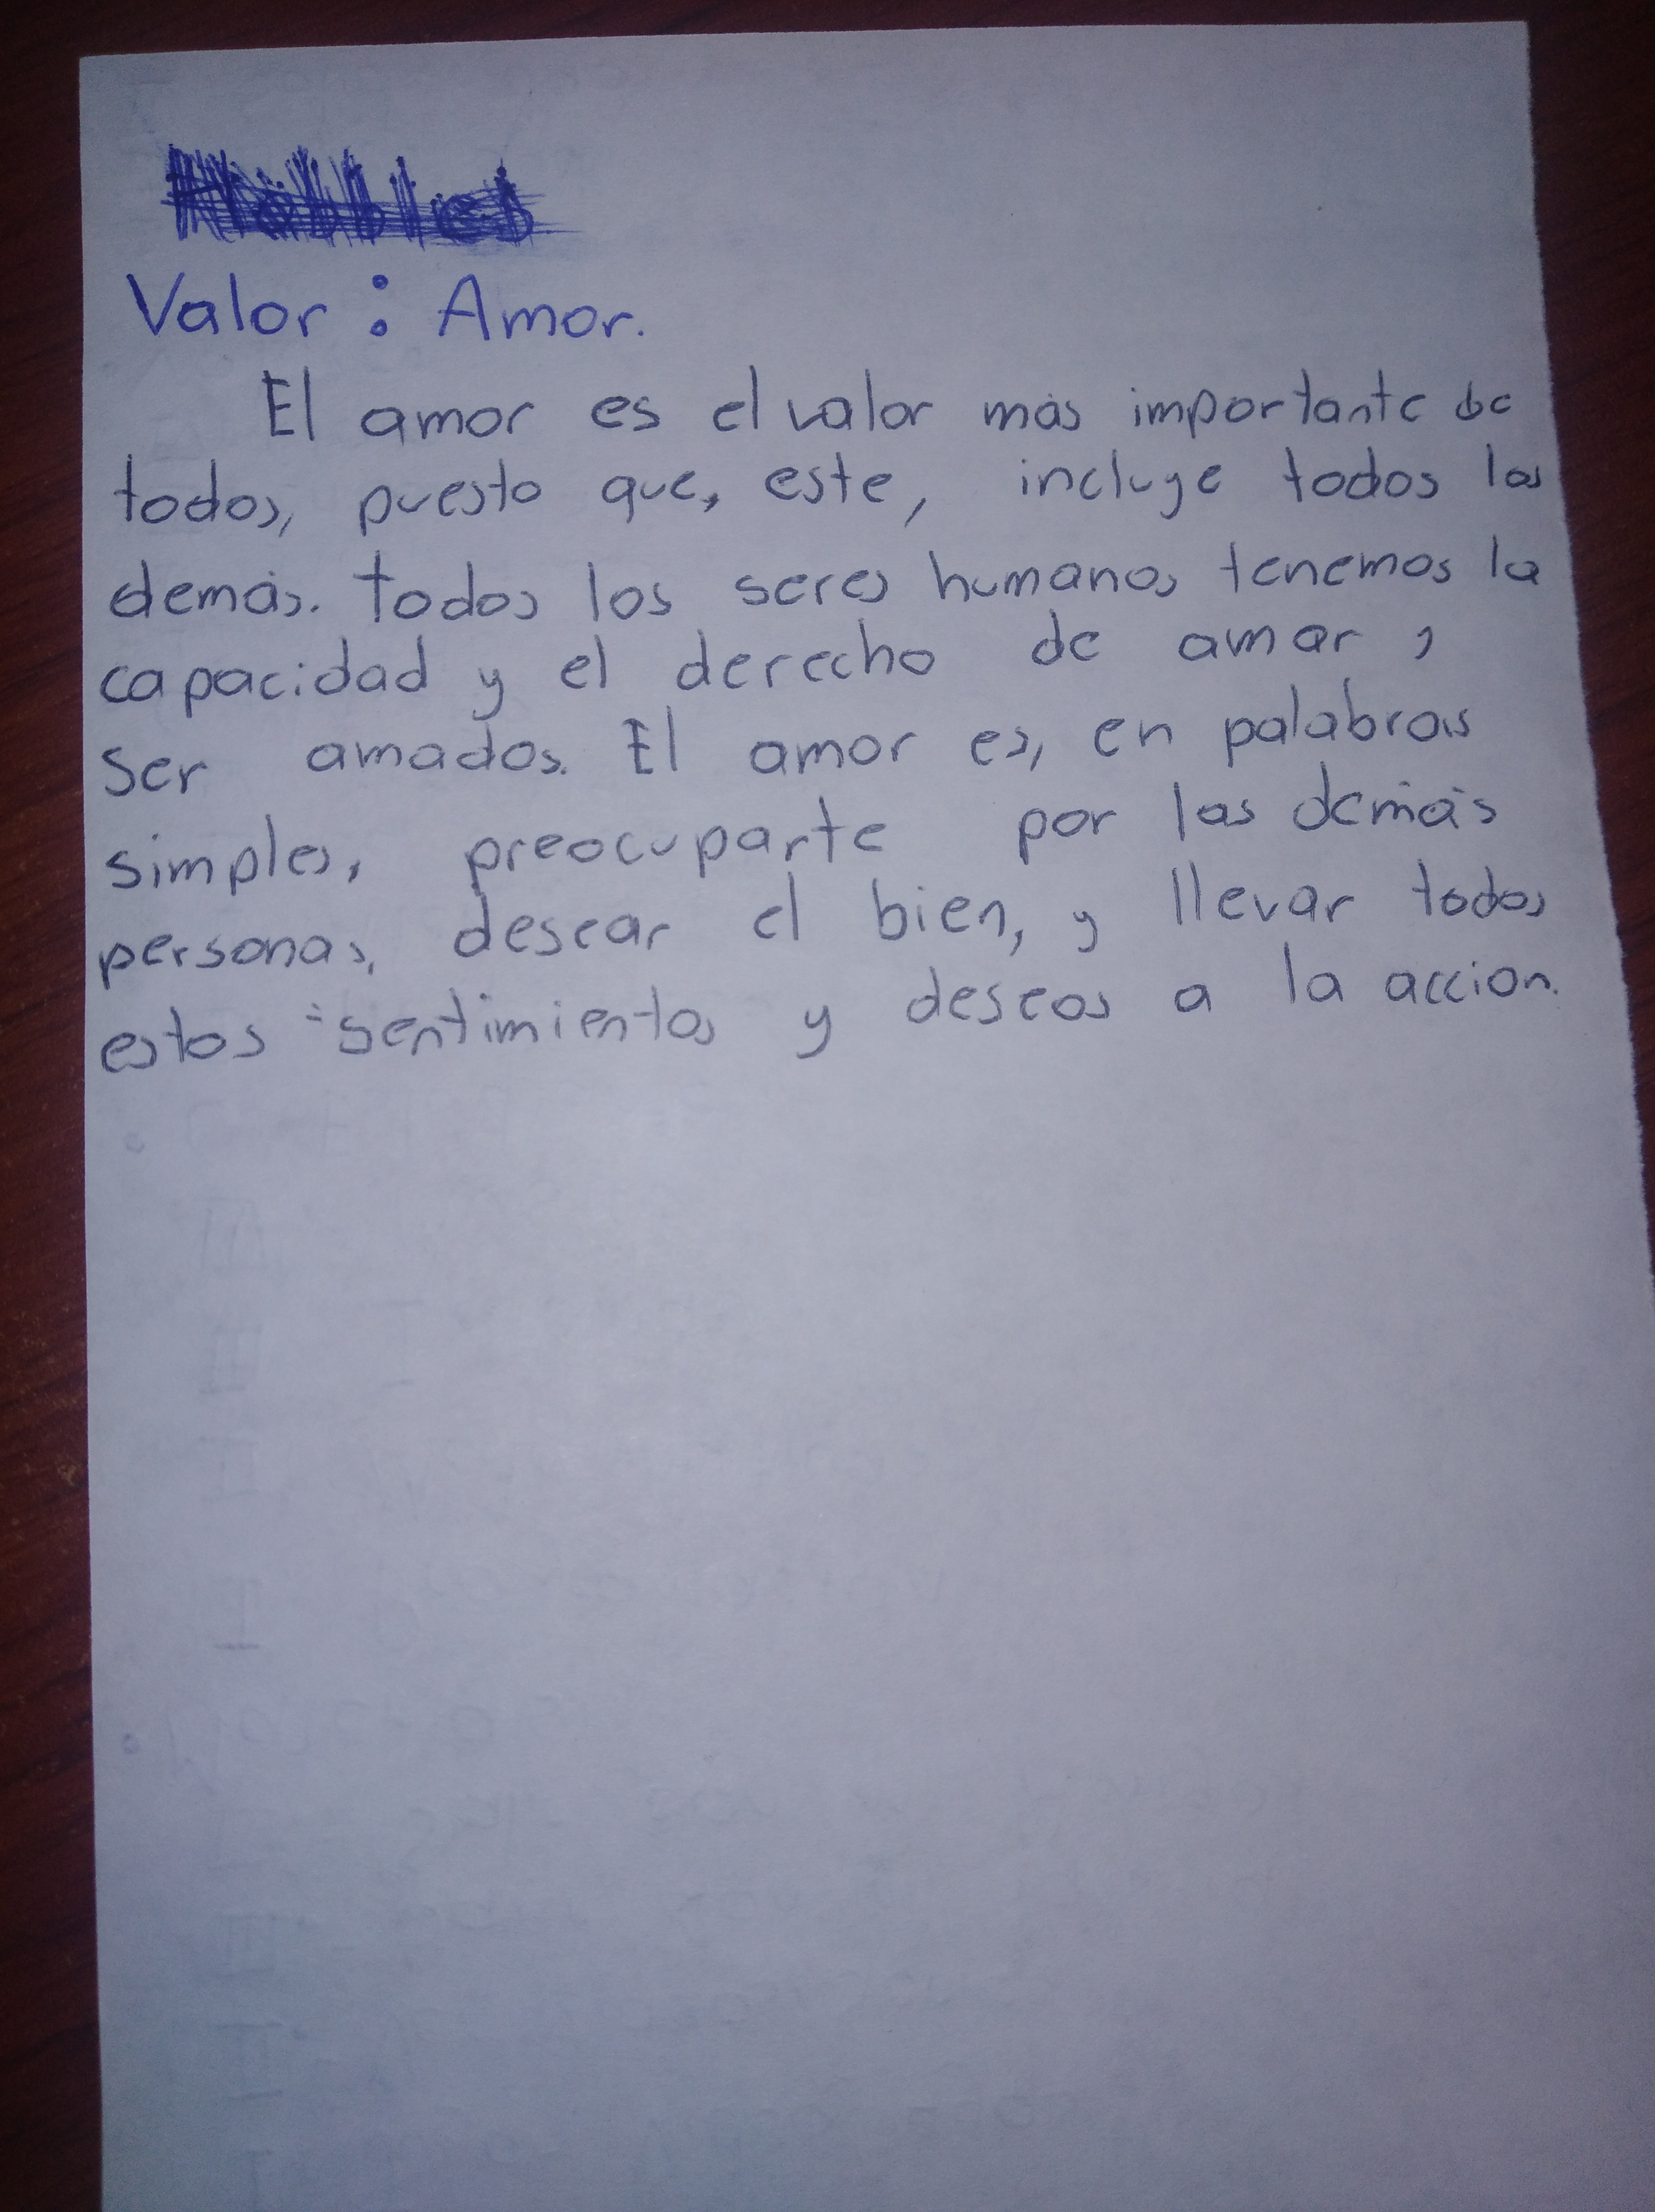 Valor: Amor.
El amor es el valor más importante de
todos, puesto que, este, incluye todos los
demás. todos los seres humanos tenemos la
capacidad y el derecho de amar y
ser amados. El amor es, en palabras
simples, preocuparte por las demás
personas, desear el bien, y llevar todos
estos sentimientos y deseos a la accion.